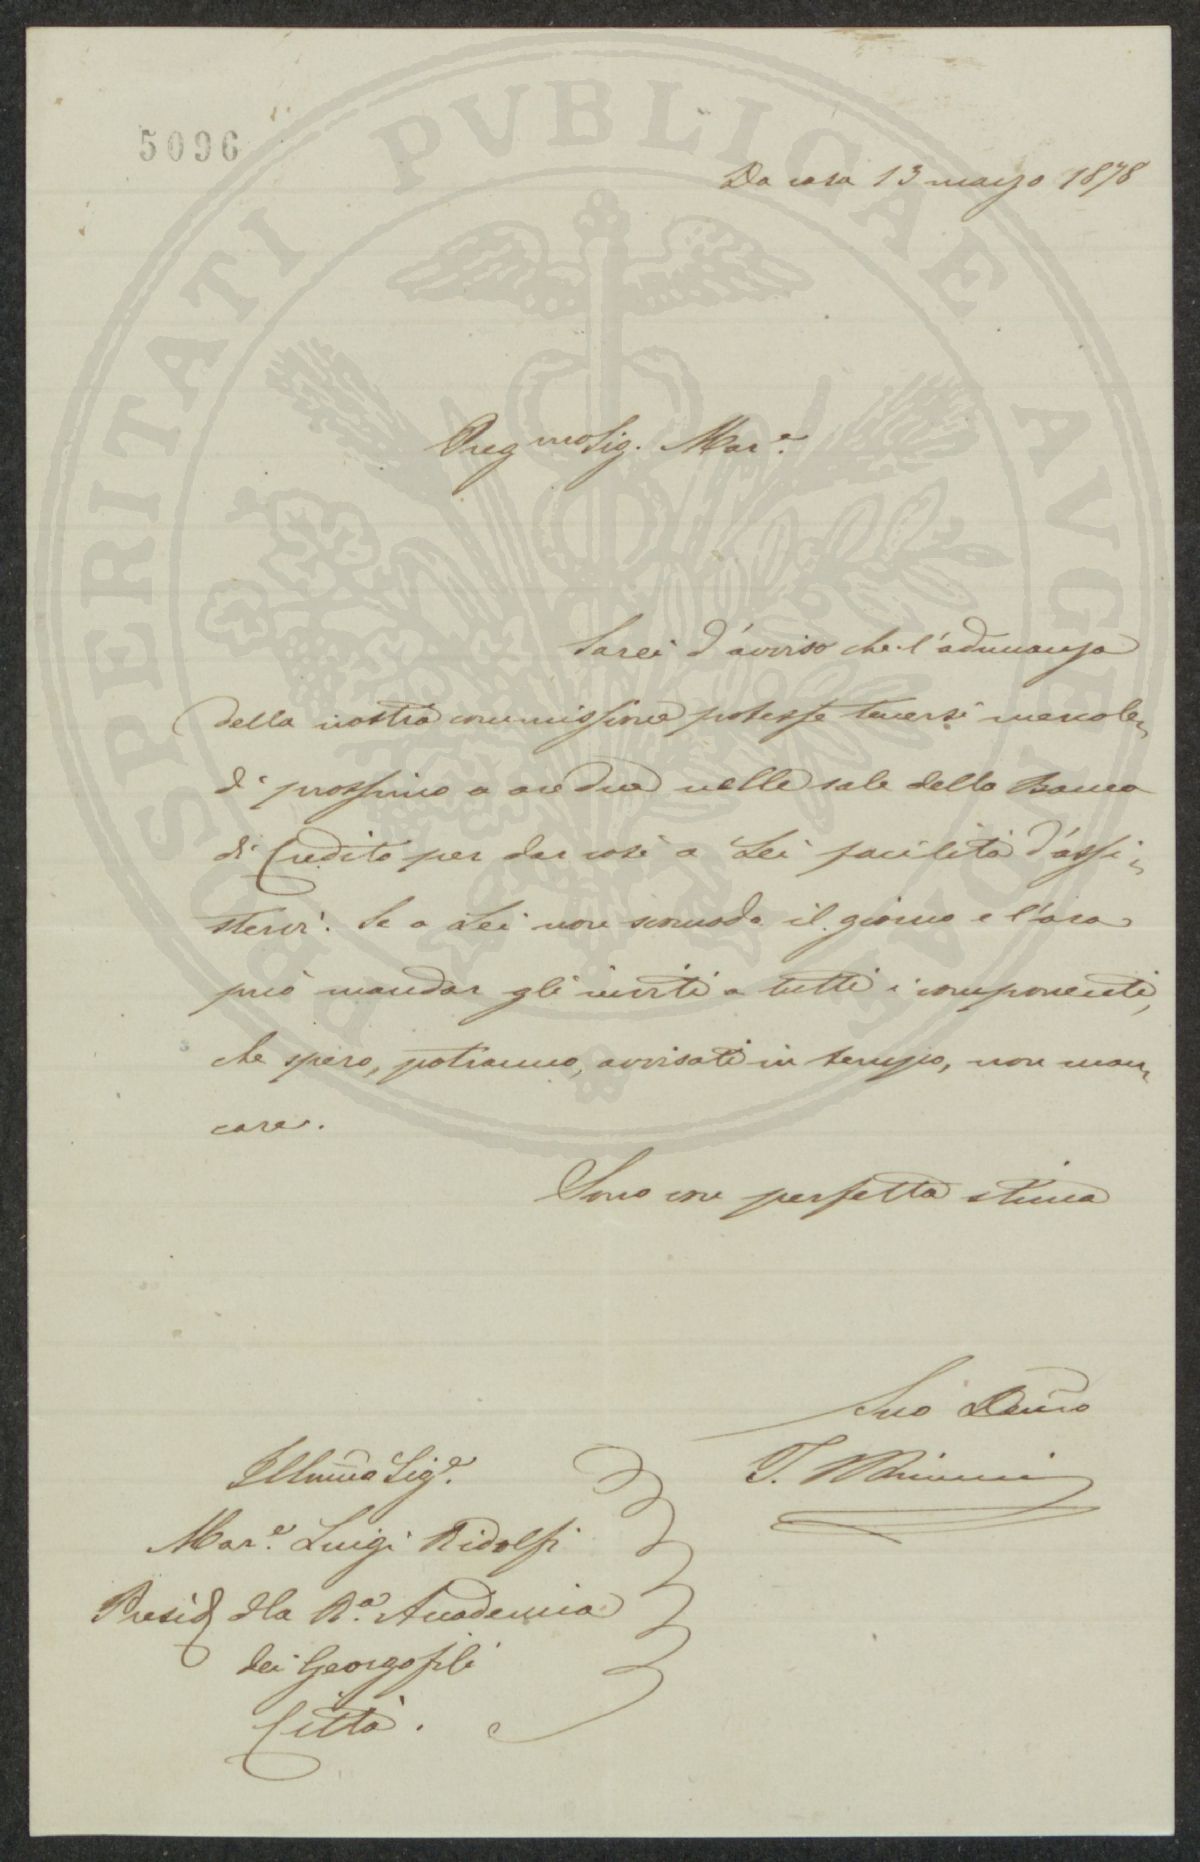 PROSPERITATI PVBLICAE AVGENDAE
5096
Da casa 13 marzo 1878
Preg mo Sig. Mar.e
Sarei d'avviso che l'adunanza
della nostra commissione potesse tenersi mercole-
dì prossimo a ore due nelle sale della Banca
di Credito per dar così a Lei facilità d'assi-
stervi. Se a Lei non scomoda il giorno e l'ora
può mandar gli inviti a tutti i componenti,
che spero, potranno, avvisati in tempo, non man-
care.
Sono con perfetta stima
Suo
T.
Illmo Sig.e
Mar.e Luigi Ridolfi
Presid dla R.a Accademia
dei Georgofili
Città.